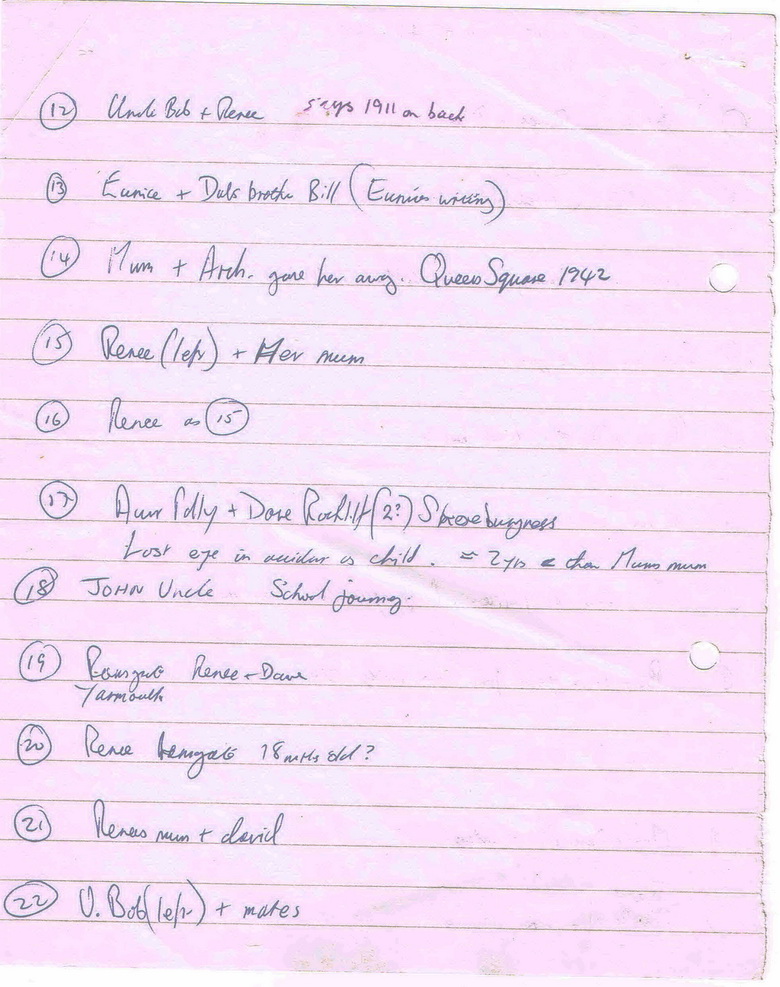 12 Uncle Bob + Renee says 1911 on back
13 Eunice + Dad's brother Bill (Eunice's writing)
14 Mum + Arch. gave her away. Queen Square 1942
15 Renee (left) + Her mum
16 Renee as 15
17 Aunt Polly + Dave (2?)
Lost eye in accident as child. ≈ 2yrs < than Mums mum
18 JOHN Uncle School journey.
19 Ramsgate Renee + Dave
Yarmouth
20 Renee Ramsgate 18 mths old?
21 Renees mum + david
22 U. Bob (left) + mates